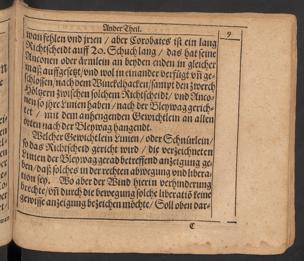 Ander Theil.
9
wan fehlen und irren / aber Corobates ist ein lang
Richtscheidt auff 20. Schuch lang / das hat seine
Anconen oder ärmlein an beyden enden in gleicher
maß auffgesetzt / und wol in einander verfügt uñ ge-
schlossen / nach dem Winckelhacken / sampt den zwerch
Höltzern zwischen solchem Richtscheidt / und Anco-
nen so ihre Linien haben / nach der Bleywag gerich-
tet / mit dem anhengenden Gewichtlein an allen
orten nach der Bleywag hangendt.
Welcher Gewichtlein Linien / oder Schnürlein /
so das Richtscheid gericht wird / die verzeichneten
Linien der Bleywag gerad betreffend anzeigung ge-
ben / daß solches in der rechten abwegung und libera-
tion sey. Wo aber der Wind hierin verhinderung
brechte / uñ durch die bewegung solche liberation keine
gewisse anzeigung bezeichen möchte / Soll oben dar-
C